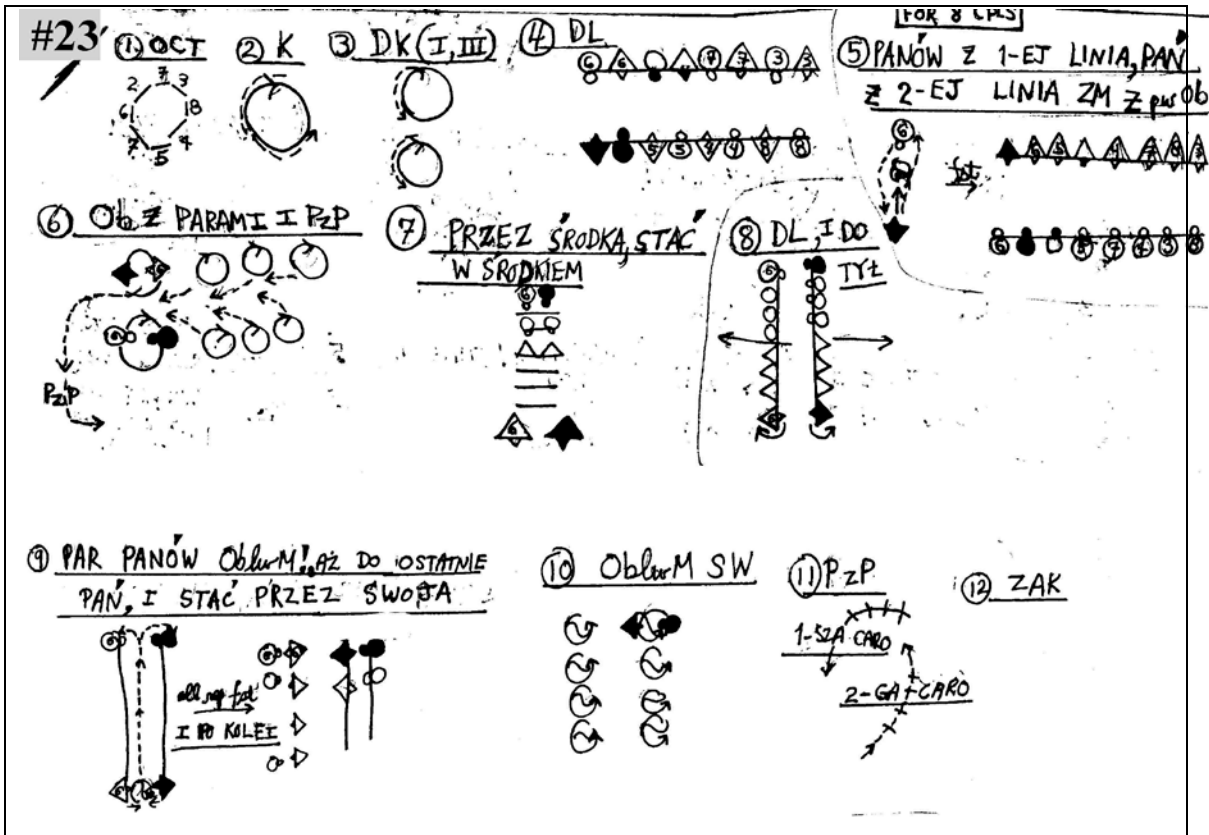 #23
① OCT
② K
③ DK (I, III)
④ DL
FOR 8 CPLS
⑤ PANÓW Z 1-EJ LINIA, PAŃ
Z 2-EJ LINIA ZM Z pws Ob
⑥ Ob Z PARAMI I PzP
PzP
⑦ PRZEZ ŚRODKA, STAĆ
W ŚRODKIEM
⑧ DL, I DO
TYŁ
⑨ PAR PANÓW OblwM! AŻ DO OSTATNIE
PAŃ, I STAĆ PRZEZ SWOJA
all rep fst
I PO KOLEI
⑩ OblwM SW
⑪ PzP
1-SZA CARO
2-GA CARO
⑫ ZAK